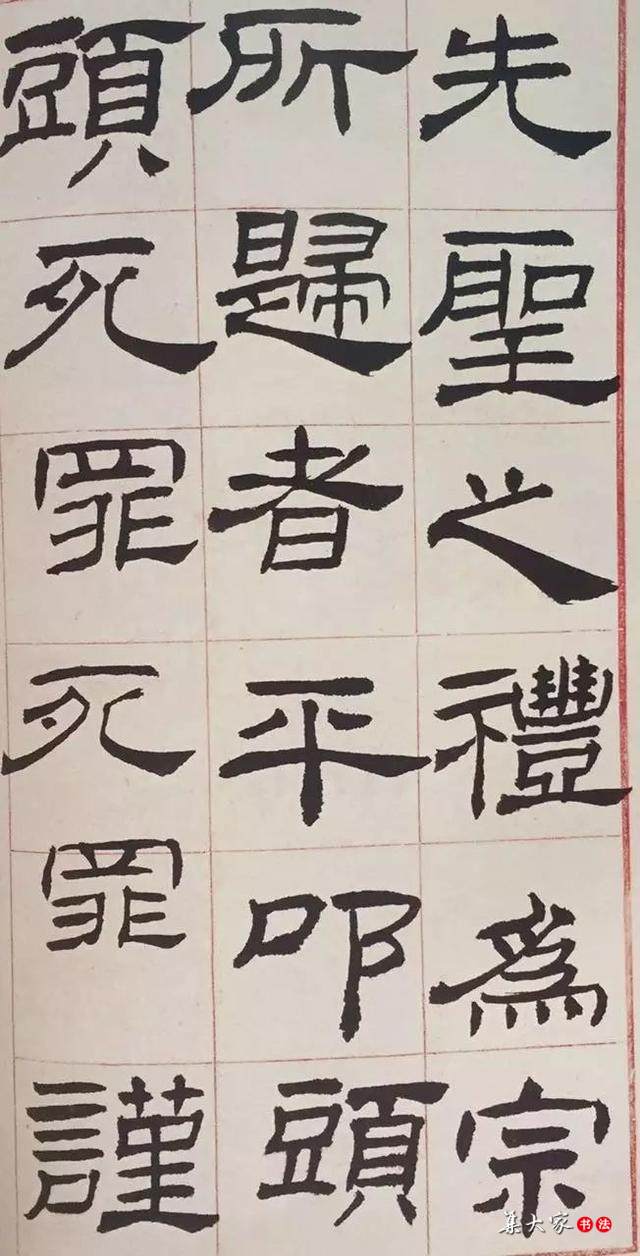 先聖之禮為宗
所歸者平叩頭
頭死罪死罪謹
集大家书法